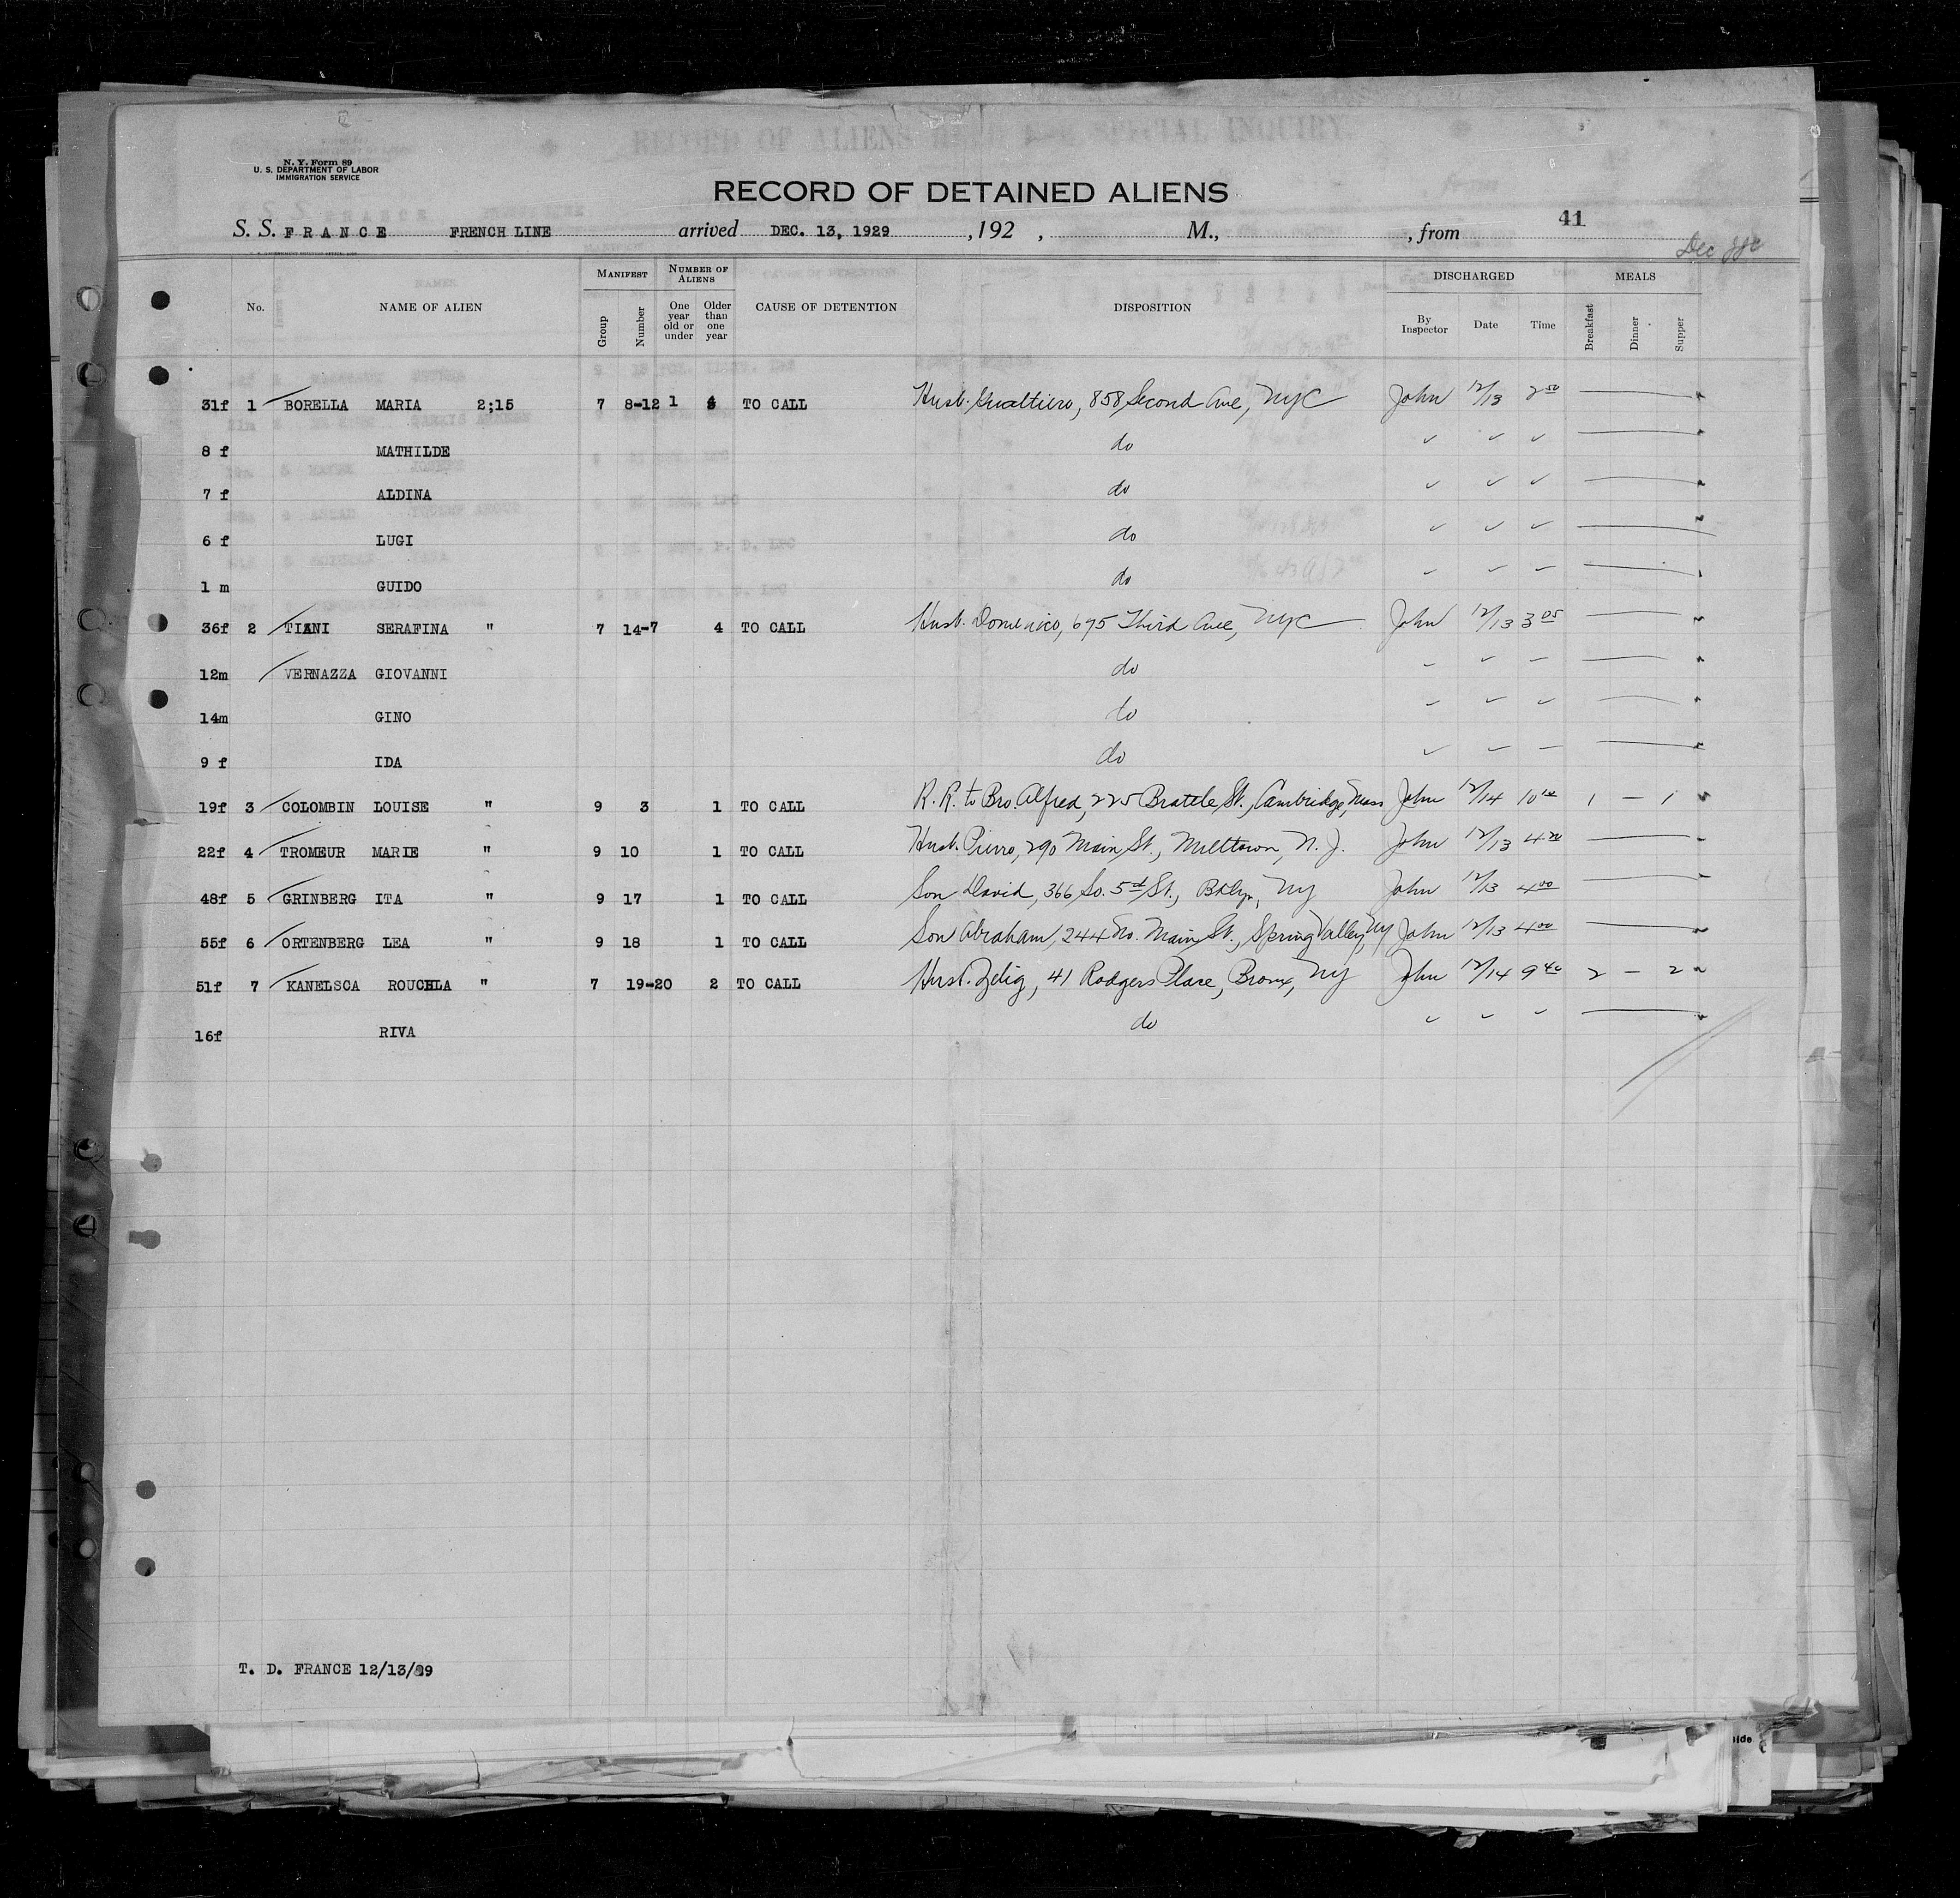 N. Y. Form 89
U. S. DEPARTMENT OF LABOR
IMMIGRATION SERVICE
RECORD OF DETAINED ALIENS
S. S. FRANCE FRENCH LINE arrived DEC. 13, 1929 , 192 , M., , from 41
MANIFEST NUMBER OF ALIENS DISCHARGED MEALS
No. NAME OF ALIEN Group Number One year old or under Older than one year CAUSE OF DETENTION DISPOSITION By Inspector Date Time Breakfast Dinner Supper
31f 1 BORELLA MARIA 2;15 7 8-12 1 4 TO CALL Husb. Gualtiero, 858 Second Ave, NYC John 12/13 2 50
8 f MATHILDE do
7 f ALDINA do
6 f LUGI do
1 m GUIDO do
36f 2 TIANI SERAFINA " 7 14-7 4 TO CALL Husb. Domenico, 695 Third Ave, NYC John 12/13 3 05
12m VERNAZZA GIOVANNI do
14m GINO do
9 f IDA do
19f 3 COLOMBIN LOUISE " 9 3 1 TO CALL R. R. to Bro. Alfred, 225 Brattle St., Cambridge, Mass John 12/14 10 1 — 1
22f 4 TROMEUR MARIE " 9 10 1 TO CALL Husb. Pierro, 290 Main St., Milltown, N. J. John 12/13 4 20
48f 5 GRINBERG ITA " 9 17 1 TO CALL Son David, 366 So. 5th St., Bklyn, NY John 12/13 4 00
55f 6 ORTENBERG LEA " 9 18 1 TO CALL Son Abraham, 244 No. Main St., Spring Valley, NY John 12/13 4 00
51f 7 KANELSCA ROUCHLA " 7 19-20 2 TO CALL Husb. Zelig, 41 Rodgers Place, Bronx, NY John 12/14 9 40 2 — 2
16f RIVA do
T. D. FRANCE 12/13/29